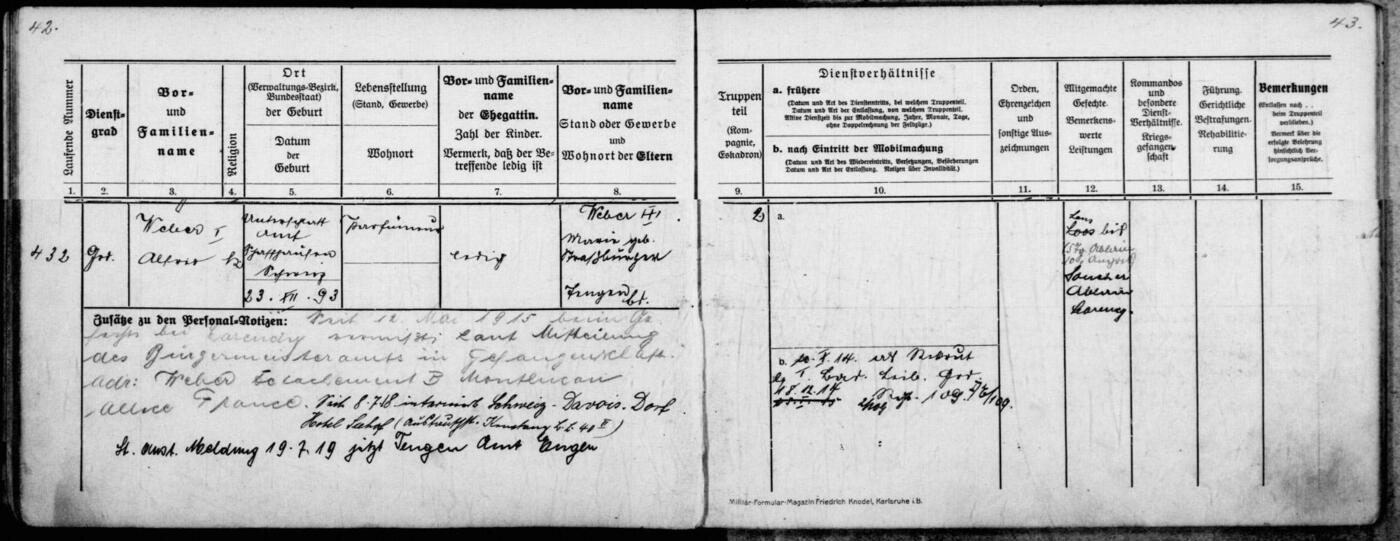 42.
43.
Laufende Nummer
Dienst-
grad
Vor-
und
Familien-
name
Religion
Ort
(Verwaltungs-Bezirk,
Bundesstaat)
der Geburt
Datum
der
Geburt
Lebensstellung
(Stand, Gewerbe)
Wohnort
Vor- und Familien-
name
der Ehegattin.
Zahl der Kinder.
Vermerk, daß der Be-
treffende ledig ist
Vor- und Familien-
name
Stand oder Gewerbe
und
Wohnort der Eltern
1. 2. 3. 4. 5. 6. 7. 8.
Truppen
teil
(Kom-
pagnie,
Eskadron)
Dienstverhältnisse
a. frühere
(Datum und Art des Diensteintritts, bei welchem Truppenteil.
Datum und Art der Entlassung, von welchem Truppenteil.
Aktive Dienstzeit bis zur Mobilmachung, Jahre, Monate, Tage,
ohne Doppelrechnung der Feldzüge.)
b. nach Eintritt der Mobilmachung
(Datum und Art des Wiedereintritts, Versetzungen, Beförderungen
Datum und Art der Entlassung. Notizen über Invalidität.)
Orden,
Ehrenzeichen
und
sonstige Aus-
zeichnungen
Mitgemachte
Gefechte.
Bemerkens-
werte
Leistungen
Kommandos
und
besondere
Dienst-
Verhältnisse.
Kriegs-
gefangen-
schaft
Führung.
Gerichtliche
Bestrafungen.
Rehabilitie-
rung.
Bemerkungen
(Entlassen nach . .
beim Truppenteil
verblieben.)
Vermerk über die
erfolgte Belehrung
hinsichtlich Ver-
sorgungsansprüche.
9. 10. 11. 12. 13. 14. 15.
432
Weber I
Amt
Schaffhausen
Schweiz
23. XII. 93
ledig
Weber III
Marie geb.
Straßburger
Tengen
Zusätze zu den Personal-Notizen: Seit 12. Mai 1915 beim Ge-
fecht bei vermißt; laut Mitteilung
des Bürgermeisteramts in Gefangenschaft.
Adr: Weber Detachement B Montlucon
Allier France. Seit 8.7.18 interniert Schweiz-Davos-Dorf
Hotel Seehof (Konstanz
Meldung 19.7.19 jetzt Tengen Amt Engen
2
a.
b. 14. als Rekrut
I. Bad. Leib.
109.
Lens
Loos bis
Souchez
Ablain
Militär-Formular-Magazin Friedrich Knodel, Karlsruhe i. B.